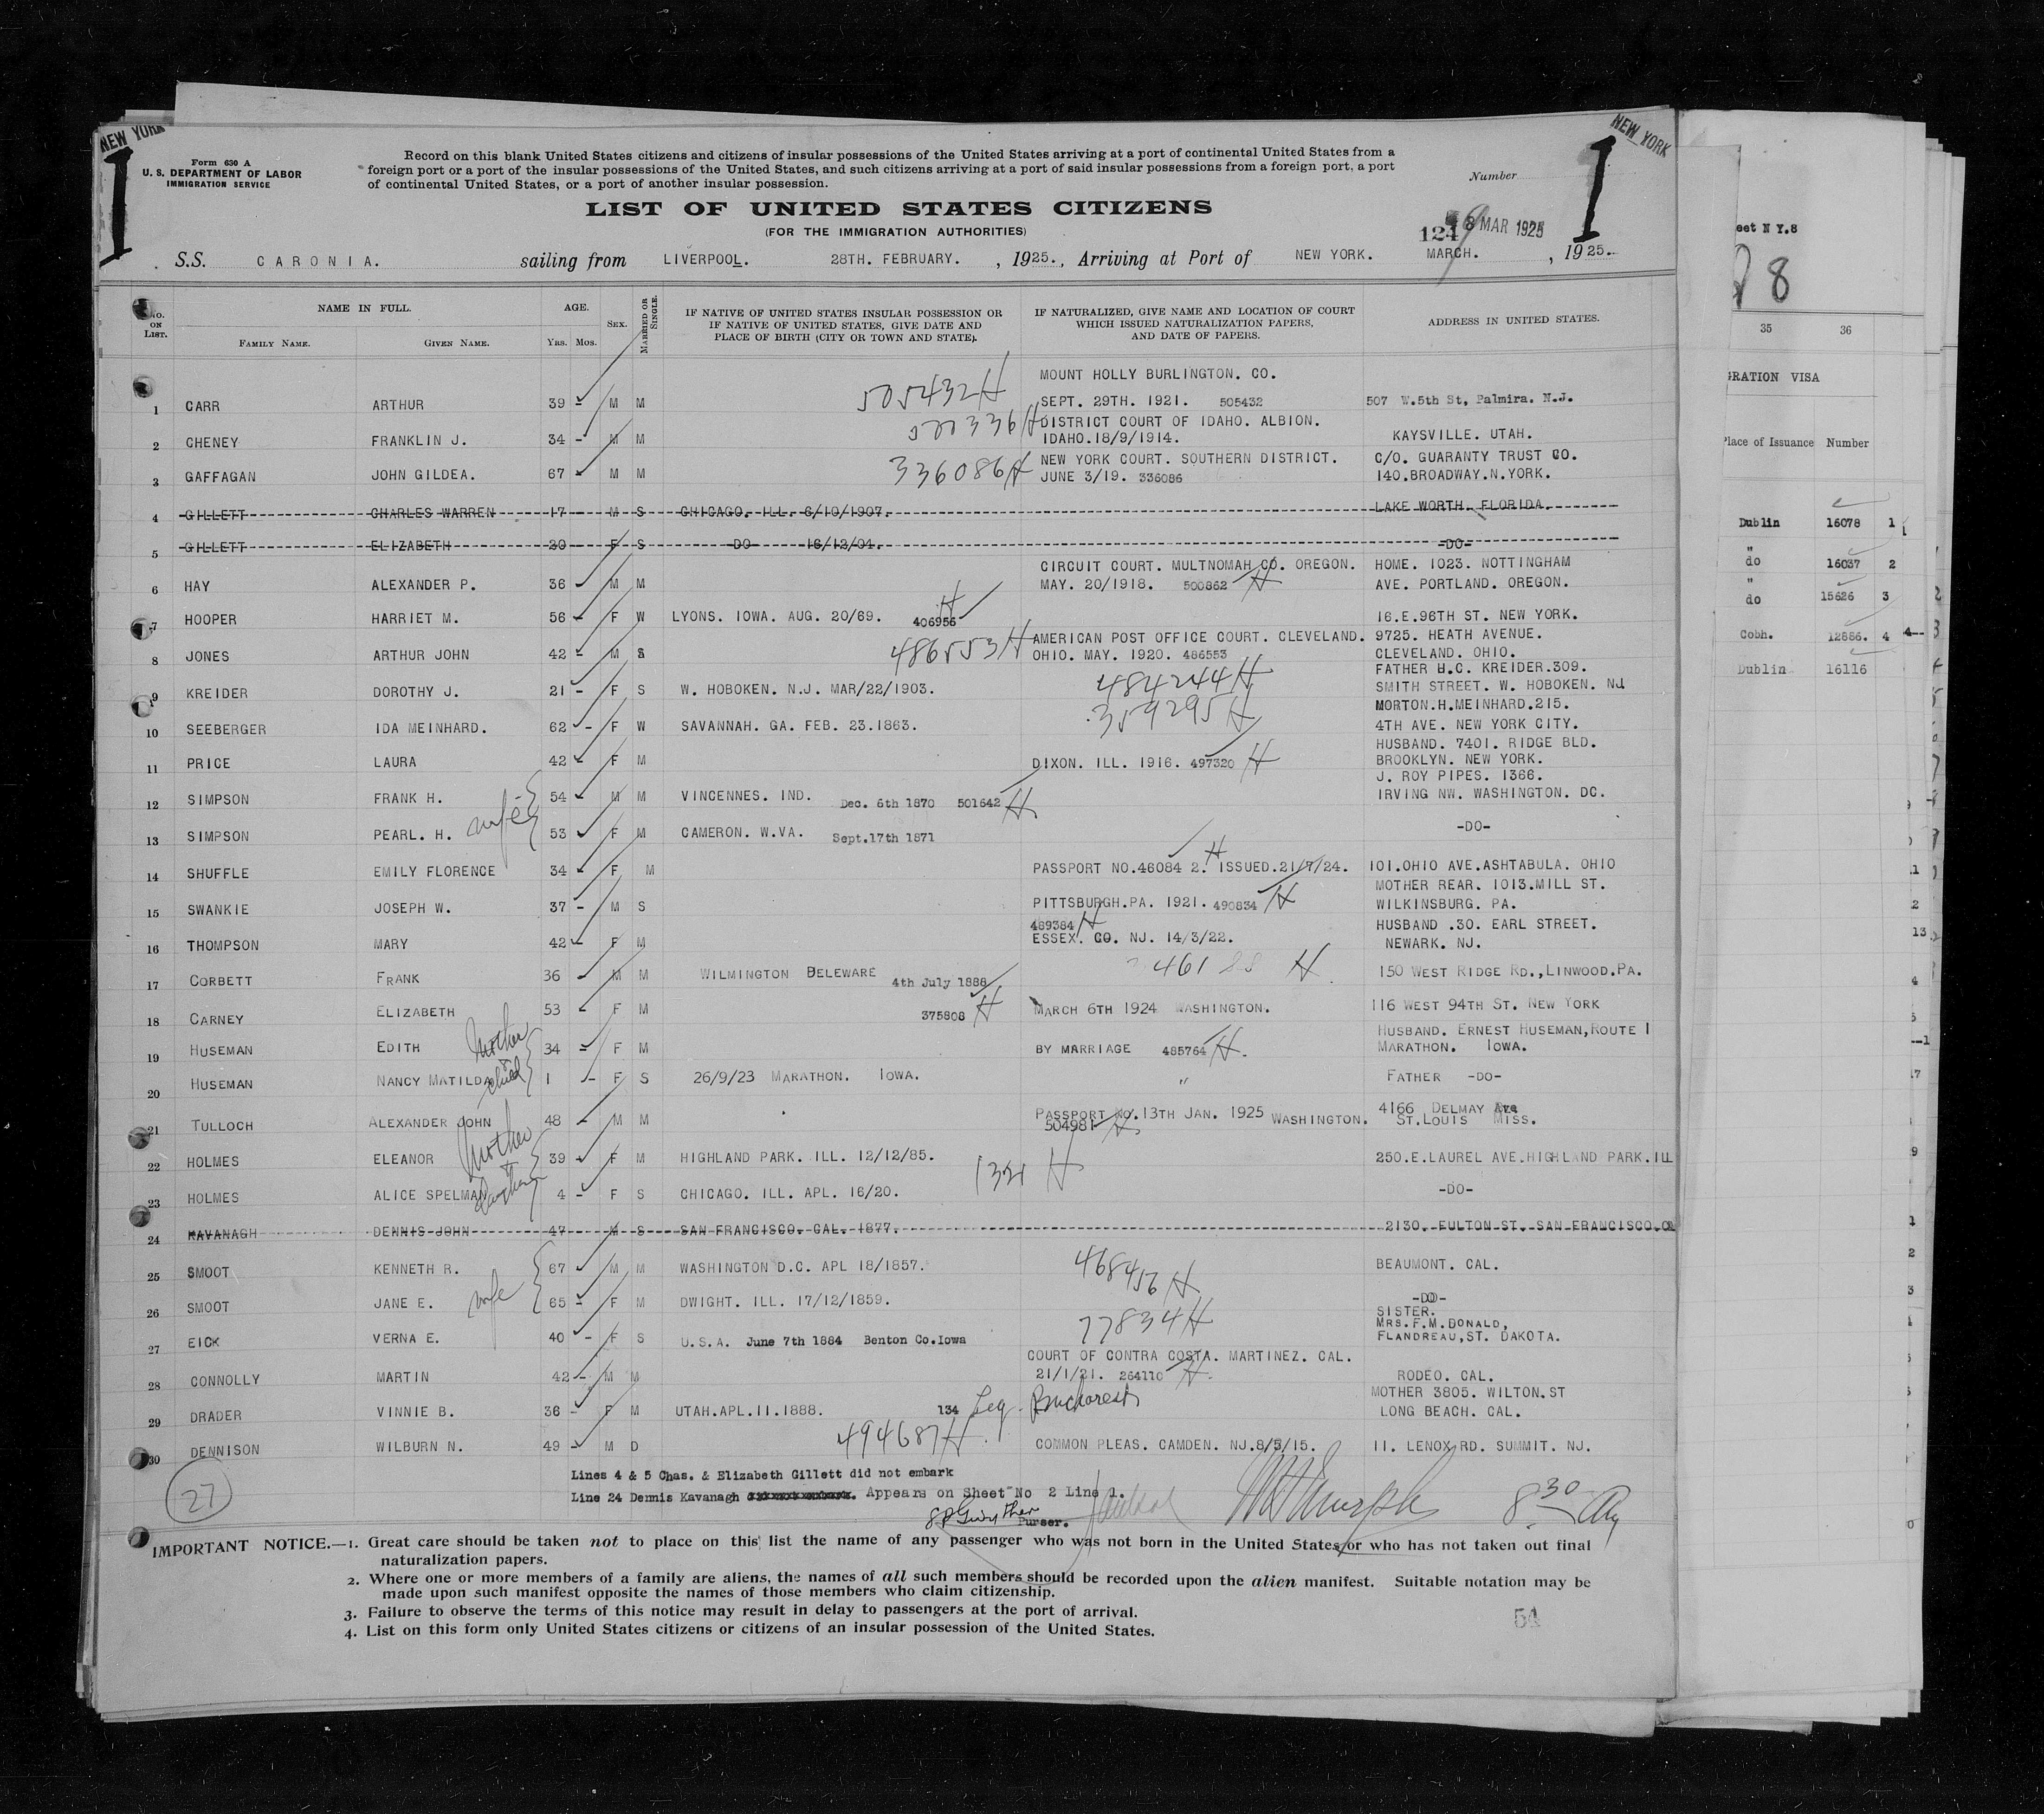 NEW YORK
NEW YORK
1
1
Form 630 A
U. S. DEPARTMENT OF LABOR
IMMIGRATION SERVICE
Record on this blank United States citizens and citizens of insular possessions of the United States arriving at a port of continental United States from a
foreign port or a port of the insular possessions of the United States, and such citizens arriving at a port of said insular possessions from a foreign port, a port
of continental United States, or a port of another insular possession.
Number
LIST OF UNITED STATES CITIZENS
(FOR THE IMMIGRATION AUTHORITIES)
124 MAR 1925
S.S. CARONIA. sailing from LIVERPOOL. 28TH. FEBRUARY. , 1925., Arriving at Port of NEW YORK. MARCH. , 1925.
NO. ON LIST. NAME IN FULL. FAMILY NAME. GIVEN NAME. AGE. Yrs. Mos. SEX. MARRIED OR SINGLE. IF NATIVE OF UNITED STATES INSULAR POSSESSION OR IF NATIVE OF UNITED STATES, GIVE DATE AND PLACE OF BIRTH (CITY OR TOWN AND STATE). IF NATURALIZED, GIVE NAME AND LOCATION OF COURT WHICH ISSUED NATURALIZATION PAPERS, AND DATE OF PAPERS. ADDRESS IN UNITED STATES.
MOUNT HOLLY BURLINGTON. CO.
1 CARR ARTHUR 39 - M M 505432 H SEPT. 29TH. 1921. 505432 507 W.5th St, Palmira. N.J.
DISTRICT COURT OF IDAHO. ALBION.
2 CHENEY FRANKLIN J. 34 - M M IDAHO.18/9/1914. KAYSVILLE. UTAH.
NEW YORK COURT. SOUTHERN DISTRICT. C/O. GUARANTY TRUST CO.
3 GAFFAGAN JOHN GILDEA. 67 - M M 336086 H JUNE 3/19. 336086 140.BROADWAY.N.YORK.
4 GILLETT CHARLES WARREN 17 - M S CHICAGO. ILL. 6/10/1907. LAKE WORTH FLORIDA.
5 GILLETT ELIZABETH 20 - F S DO 16/12/04. -DO-
CIRCUIT COURT. MULTNOMAH CO. OREGON. HOME. 1023. NOTTINGHAM
6 HAY ALEXANDER P. 36 - M M MAY. 20/1918. 500862 H AVE. PORTLAND. OREGON.
7 HOOPER HARRIET M. 56 - F W LYONS. IOWA. AUG. 20/69. 406956 H 16.E.96TH ST. NEW YORK.
AMERICAN POST OFFICE COURT. CLEVELAND. 9725. HEATH AVENUE.
8 JONES ARTHUR JOHN 42 - M S 486553 H OHIO. MAY. 1920. 486553 CLEVELAND. OHIO.
FATHER H.C. KREIDER.309.
9 KREIDER DOROTHY J. 21 - F S W. HOBOKEN. N.J. MAR/22/1903. 484244 H SMITH STREET. W. HOBOKEN. NJ
MORTON.H.MEINHARD.215.
10 SEEBERGER IDA MEINHARD. 62 - F W SAVANNAH. GA. FEB. 23.1863. 359295 H 4TH AVE. NEW YORK CITY.
HUSBAND. 7401. RIDGE BLD.
11 PRICE LAURA 42 - F M DIXON. ILL. 1916. 497320 H BROOKLYN. NEW YORK.
J. ROY PIPES. 1366.
12 SIMPSON FRANK H. 54 - M M VINCENNES. IND. Dec. 6th 1870 501642 H IRVING NW. WASHINGTON. DC.
13 SIMPSON PEARL. H. wife 53 F M CAMERON. W.VA. Sept.17th 1871 -DO-
14 SHUFFLE EMILY FLORENCE 34 - F M PASSPORT NO.46084 2. H ISSUED.21/7/24. 101.OHIO AVE.ASHTABULA. OHIO
MOTHER REAR. 1013.MILL ST.
15 SWANKIE JOSEPH W. 37 - M S PITTSBURGH.PA. 1921. 490834 H WILKINSBURG. PA.
489384 H HUSBAND .30. EARL STREET.
16 THOMPSON MARY 42 - F M ESSEX. CO. NJ. 14/3/22. NEWARK. NJ.
17 CORBETT FRANK 36 M M WILMINGTON BELEWARE 4th July 1888 46188 H 150 WEST RIDGE RD.,LINWOOD.PA.
18 CARNEY ELIZABETH 53 - F M 375808 H MARCH 6TH 1924 WASHINGTON. 116 WEST 94TH ST. NEW YORK
HUSBAND. ERNEST HUSEMAN,ROUTE 1
19 HUSEMAN EDITH Mother 34 - F M BY MARRIAGE 485764 H. MARATHON. IOWA.
20 HUSEMAN NANCY MATILDA & child 1 - F S 26/9/23 MARATHON. IOWA. " FATHER -DO-
4166 DELMAY Ave
21 TULLOCH ALEXANDER JOHN 48 - M M PASSPORT NO.13TH JAN. 1925 WASHINGTON. ST.LOUIS MISS.
504981 H
22 HOLMES ELEANOR Mother 39 - F M HIGHLAND PARK. ILL. 12/12/85. 1321 H 250.E.LAUREL AVE.HIGHLAND PARK.ILL
23 HOLMES ALICE SPELMAN & daughter 4 - F S CHICAGO. ILL. APL. 16/20. -DO-
24 KAVANAGH DENNIS JOHN 47 M S SAN FRANCISCO. CAL. 1877. 2130. FULTON ST. SAN FRANCISCO.CA
25 SMOOT KENNETH R. 67 M M WASHINGTON D.C. APL 18/1857. 468456 H BEAUMONT. CAL.
26 SMOOT JANE E. wife 65 - F M DWIGHT. ILL. 17/12/1859. -DO-
SISTER.
MRS.F.M.DONALD,
27 EICK VERNA E. 40 - F S U.S.A. June 7th 1884 Benton Co.Iowa 77834 H FLANDREAU,ST. DAKOTA.
COURT OF CONTRA COSTA. MARTINEZ. CAL.
28 CONNOLLY MARTIN 42 - M M 21/1/21. 264110 H. RODEO. CAL.
MOTHER 3805. WILTON.ST
29 DRADER VINNIE B. 36 - F M UTAH.APL.11.1888. 134 Leg. Bucharest LONG BEACH. CAL.
30 DENNISON WILBURN N. 49 - M D 494687 H. COMMON PLEAS. CAMDEN. NJ.8/5/15. 11. LENOX RD. SUMMIT. NJ.
27
Lines 4 & 5 Chas. & Elizabeth Gillett did not embark
Line 24 Dennis Kavanagh Appears on Sheet No 2 Line 1.
Purser.
8 30 AM
IMPORTANT NOTICE.—1. Great care should be taken not to place on this list the name of any passenger who was not born in the United States or who has not taken out final
naturalization papers.
2. Where one or more members of a family are aliens, the names of all such members should be recorded upon the alien manifest. Suitable notation may be
made upon such manifest opposite the names of those members who claim citizenship.
3. Failure to observe the terms of this notice may result in delay to passengers at the port of arrival.
4. List on this form only United States citizens or citizens of an insular possession of the United States.
54
eet N Y.8
8
35 36
GRATION VISA
Place of Issuance Number
Dublin 16078 1
" do 16037 2
" do 15626 3
Cobh. 12886. 4
Dublin 16116